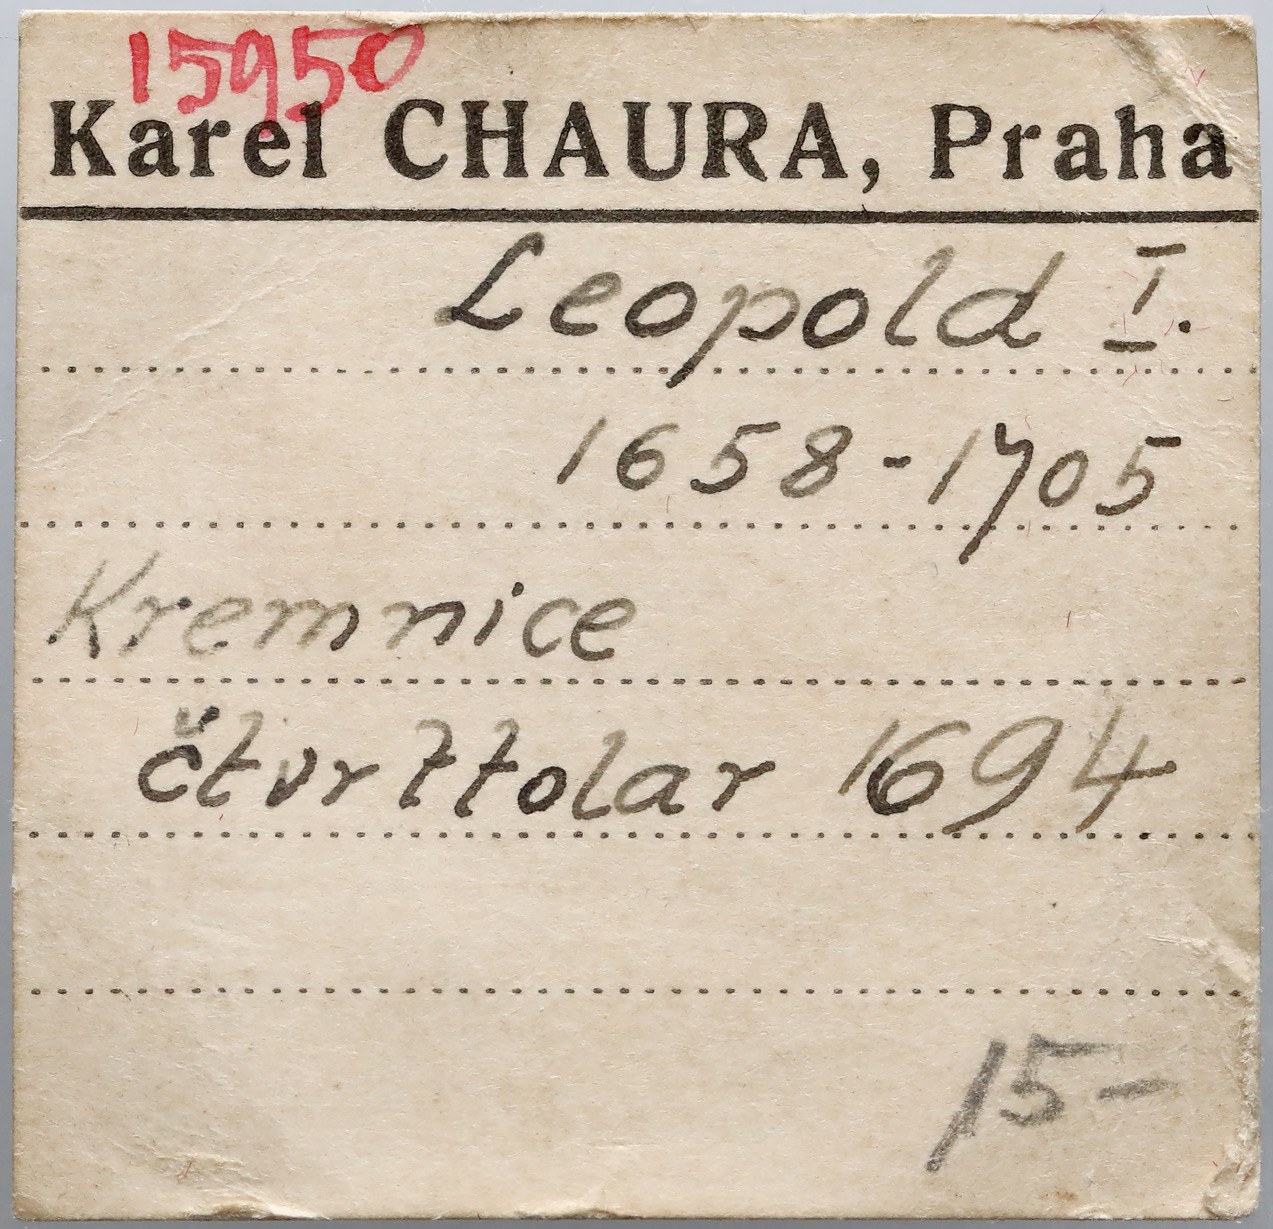 15950
Karel CHAURA, Praha
Leopold I.
1658-1705
Kremnice
čtvrttolar 1694
15-